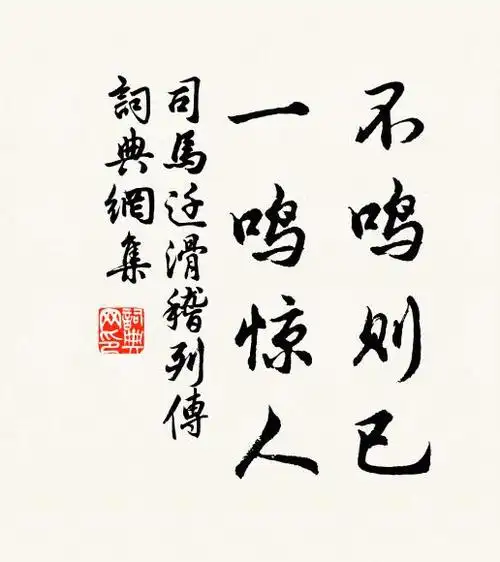 不鸣则已
一鸣惊人
司馬迁滑稽列傳
詞典網集
詞典网印